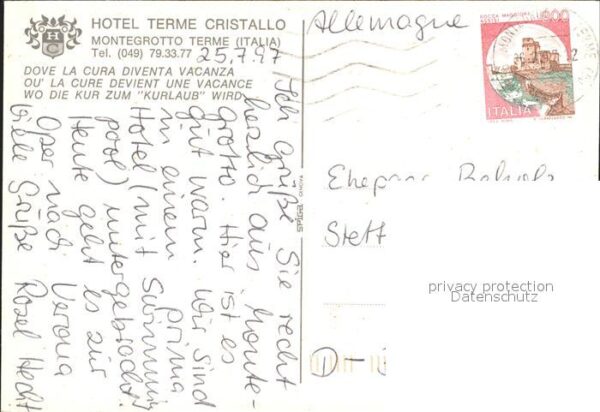 HOTEL TERME CRISTALLO
MONTEGROTTO TERME (ITALIA)
Tel. (049) 79.33.77
DOVE LA CURA DIVENTA VACANZA
OU' LA CURE DEVIENT UNE VACANCE
WO DIE KUR ZUM "KURLAUB" WIRD
H C
25.7.97
Ich grüße Sie recht
herzlich aus Monte-
grotto. Hier ist es
gut warm. Wir sind
in einem prima
Hotel (mit Swimming
pool) untergebracht.
Heute geht es zur
Oper nach Verona
Viele Grüße Rosel Hecht
Allemagne
ROCCA MAGGIORE
ITALIA
Ehepaar
Stett
D-
privacy protection
Datenschutz